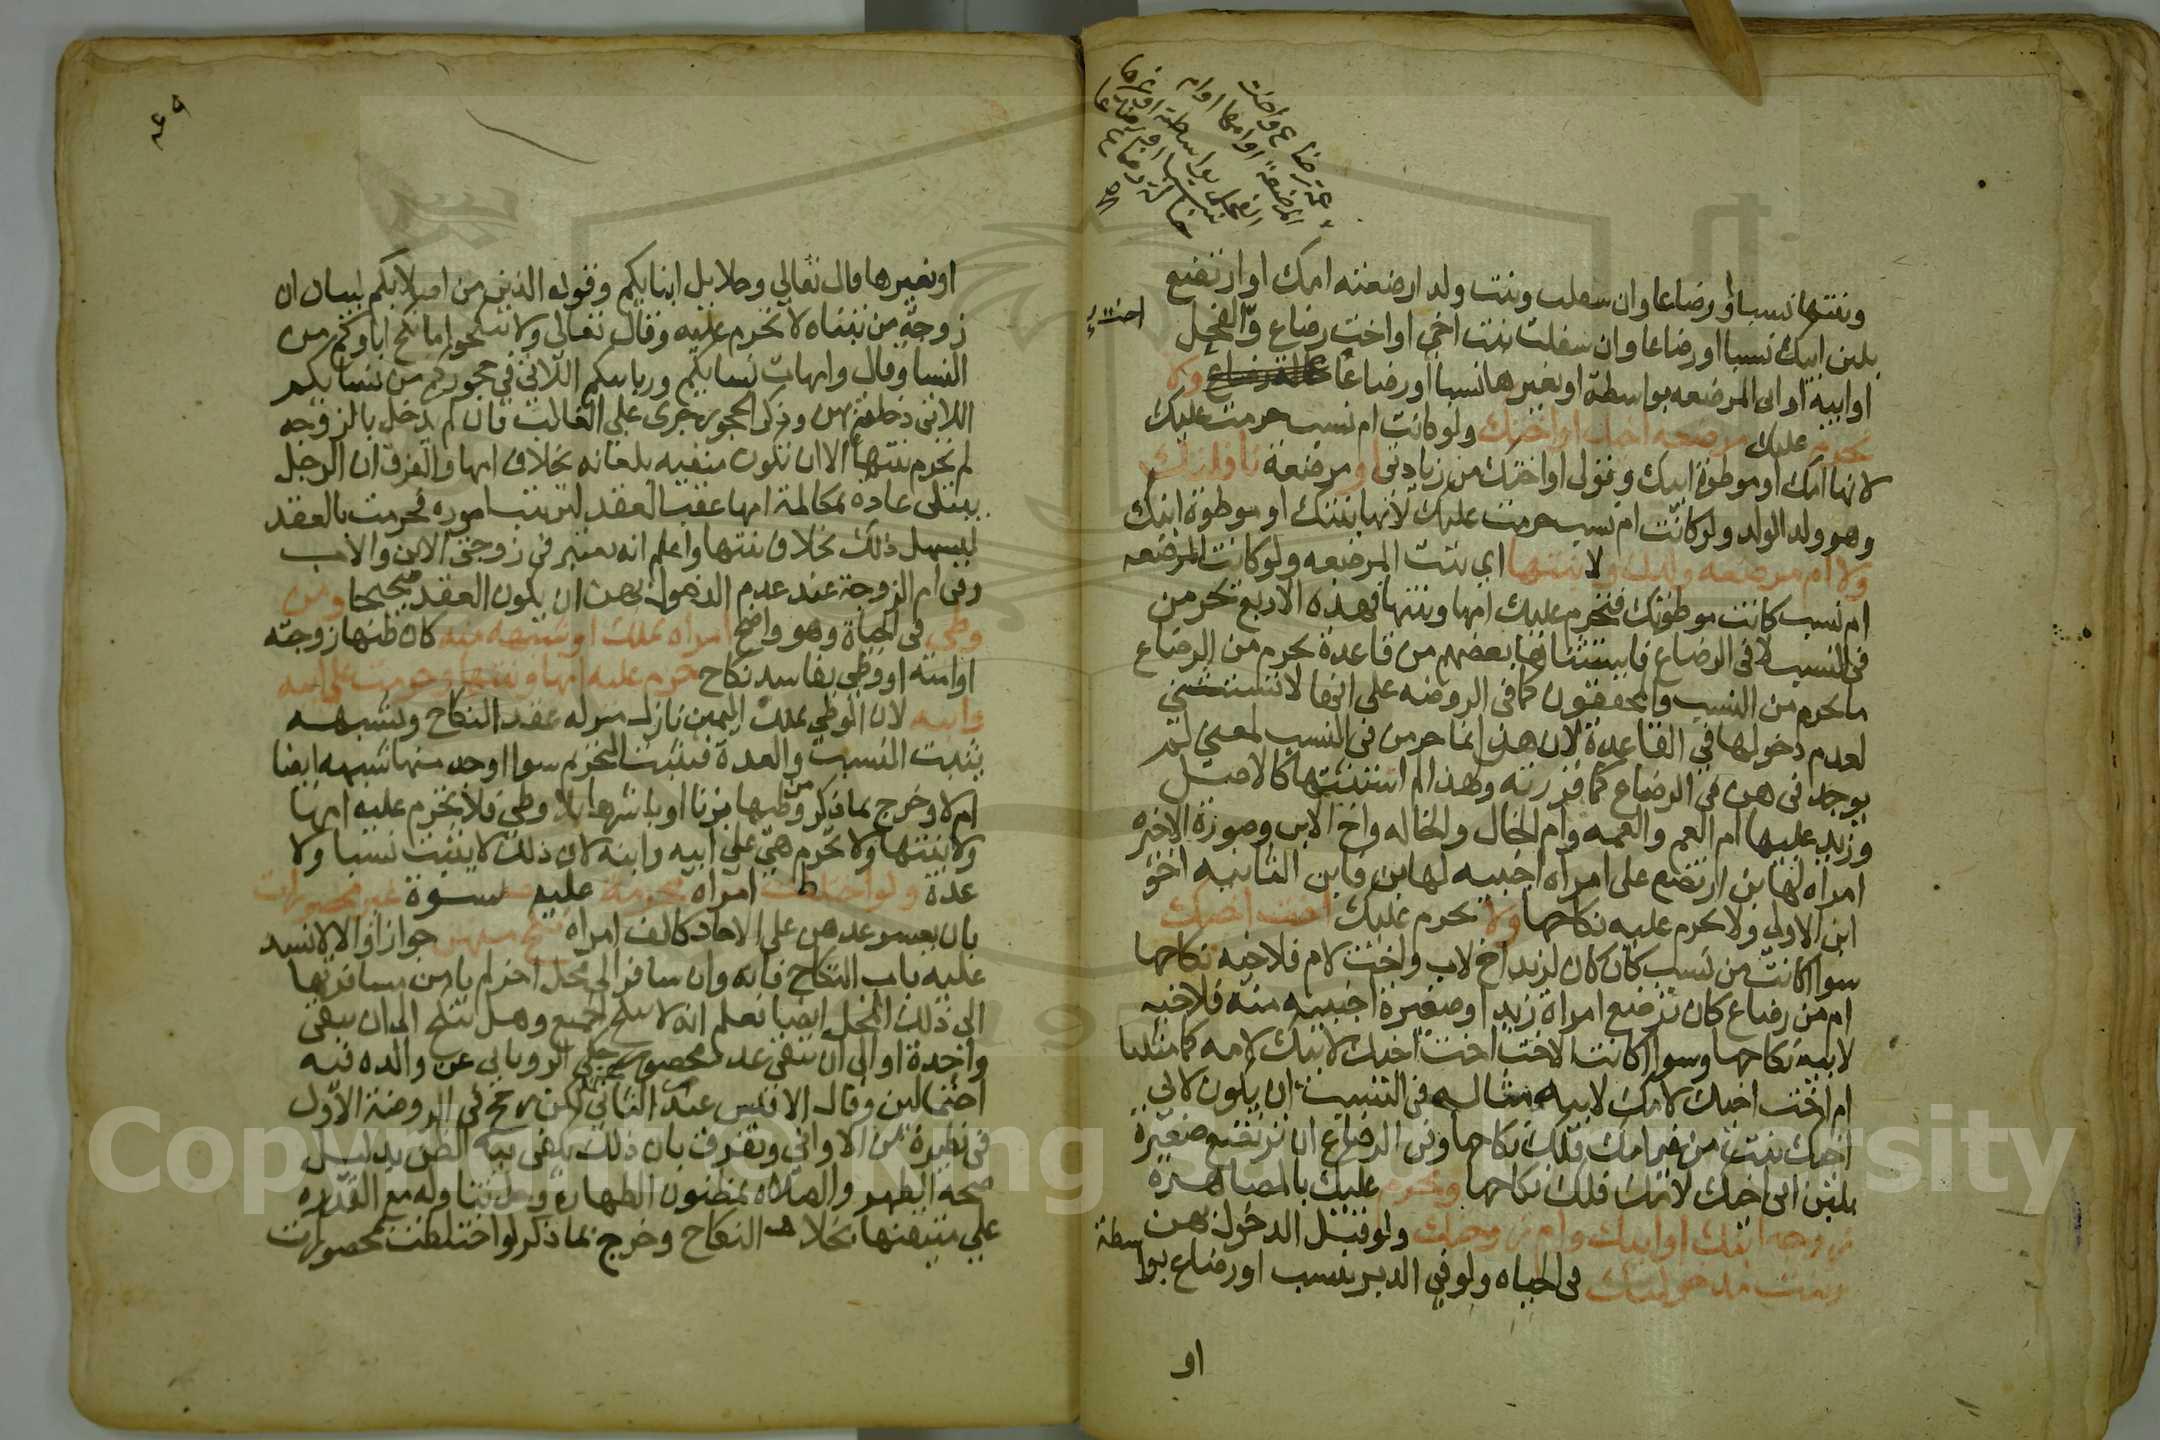 عمة رضاع واخت
المرضعة او امها او ام
الفحل بواسطة او غيرها
نسبا او رضاعا
خالة رضاع
صح
وبنتها نسبا او رضاعا وان سفلت وبنت ولد ارضعته امك او ارتضع
بلبن ابيك نسبا او رضاعا وان سفلت بنت اخ او اخت رضاع والفحل
اخت
او ابيه او الى المرضعه بواسطة او بغيرها نسبا او رضاعا خالة رضاع ولا
تحرم عليك مرضعه اخيك او اختك ولو كانت ام نسب حرمت عليك
لانها امك او موطوة ابيك وقولي او اختك من زيادتي او مرضعة نافلتك
وهو ولد الولد ولو كانت ام نسب حرمت عليك لانها بنتك او موطوة ابنك
ولا ام مرضعه ولدك ولا بنتها اي بنت المرضعه ولو كانت المرضعه
ام نسب كانت موطوتك فتحرم عليك امها وبنتها فهذه الاربع تحرمن
في النسب لا في الرضاع فاستثناها بعضهم من قاعدة يحرم من الرضاع
ما يحرم من النسب والمحققون كما في الروضه على انها لا تستثنى
لعدم دخولها في القاعدة لان هذا انما حرمن في النسب لمعنى لم
يوجد فيهن في الرضاع كما قررته وهذا لم استثنها كالاصل
وزيد عليها ام العم والعمه وام الخال والخاله واخ الابن وصورة الاخيره
امراه لها ابن ارتضع على امراه اجنبيه لها ابن فابن الثانيه اخو
ابن الاولى ولا يحرم عليه نكاحها ولا يحرم عليك اخت اخيك
سوا كانت من نسب كان كان لزيد اخ لاب واخت لام فلاخيه نكاحها
ام من رضاع كان ترضع امراة زيدا وصغيرة اجنبيه منه فلاخيه
لابيه نكاحها وسوا كانت الاخت اخت اخيك لابيك لامه كما مثلنا
ام اخت اخيك لامك لابيه مثاله في النسب ان يكون لابي
اخيك بنت من غير امك فلك نكاحها وفي الرضاع ان ترتضع صغيرة
بلبن ابي اخيك لامك فلك نكاحها وتحرم عليك بالمصاهرة
زوجه ابنك او ابيك وام زوجتك ولو قبل الدخول بهن
وبنت مدخولتك في الحياه ولو في الدبر بنسب او رضاع بواسطة
او
او بغيرها قال تعالى وحلايل ابنايكم وقوله الذين من اصلابكم لبيان ان
زوجة من تبناه لا تحرم عليه وقال تعالى ولا تنكحوا ما نكح اباوكم من
النسا وقال وامهات نسايكم وربايبكم اللاتي في حجوركم من نسايكم
اللاتي دخلتم بهن وذكر الحجور جرى على الغالب فان لم يدخل بالزوجه
لم تحرم بنتها الا ان تكون منفيه بلعانه بخلاف امها والفرق ان الرجل
يبتلى عاده بمكالمة امها عقب العقد لترتيب اموره فحرمت بالعقد
ليسهل ذلك بخلاف بنتها واعلم انه يعتبر في زوجتي الابن والاب
وفي ام الزوجة عند عدم الدخول بهن ان يكون العقد صحيحا ومن
وطى في الحياة وهو واضح امراه بملك او شبهه منه كان ظنها زوجته
او امته او وطى بفاسد نكاح حرم عليه امها وبنتها وحرمت على ابنه
وابيه لان الوطى بملك اليمين نازل منزله عقد النكاح وبشبهه
يثبت النسب والعدة فيثبت التحريم سوا اوجد منها شبهه ايضا
ام لا وخرج بما ذكر من وطيها بزنا او باشرها بلا وطي فلا تحرم عليه امها
ولا بنتها ولا تحرم هي على ابيه وابنه لان ذلك لا يثبت نسبا ولا
عدة ولو اختلطت امراه محرمة عليه بنسوة غير محصورات
بان يعسر عدهن على الاحاد كالف امراه نكح منهن جوازا والا لانسد
عليه باب النكاح فانه وان سافر الى محل اخر لم يامن مسافرتها
الى ذلك المحل ايضا نعلم انه لا ينكح الجميع وهل ينكح الى ان يبقى
واحدة او الى ان يبقى عدد محصور حكى الروياني عن والده فيه
احتمالين وقال الاقيس عندي الثاني لكن رجح في الروضة الاول
في نظيره من الاواني وتفرق بان ذلك يكفي فيه الظن بدليل
صحه الطهر والصلاه بمظنون الطهارة وحل تناوله مع القدره
على متيقنها بخلاف النكاح وخرج بما ذكر لو اختلطت بمحصورات